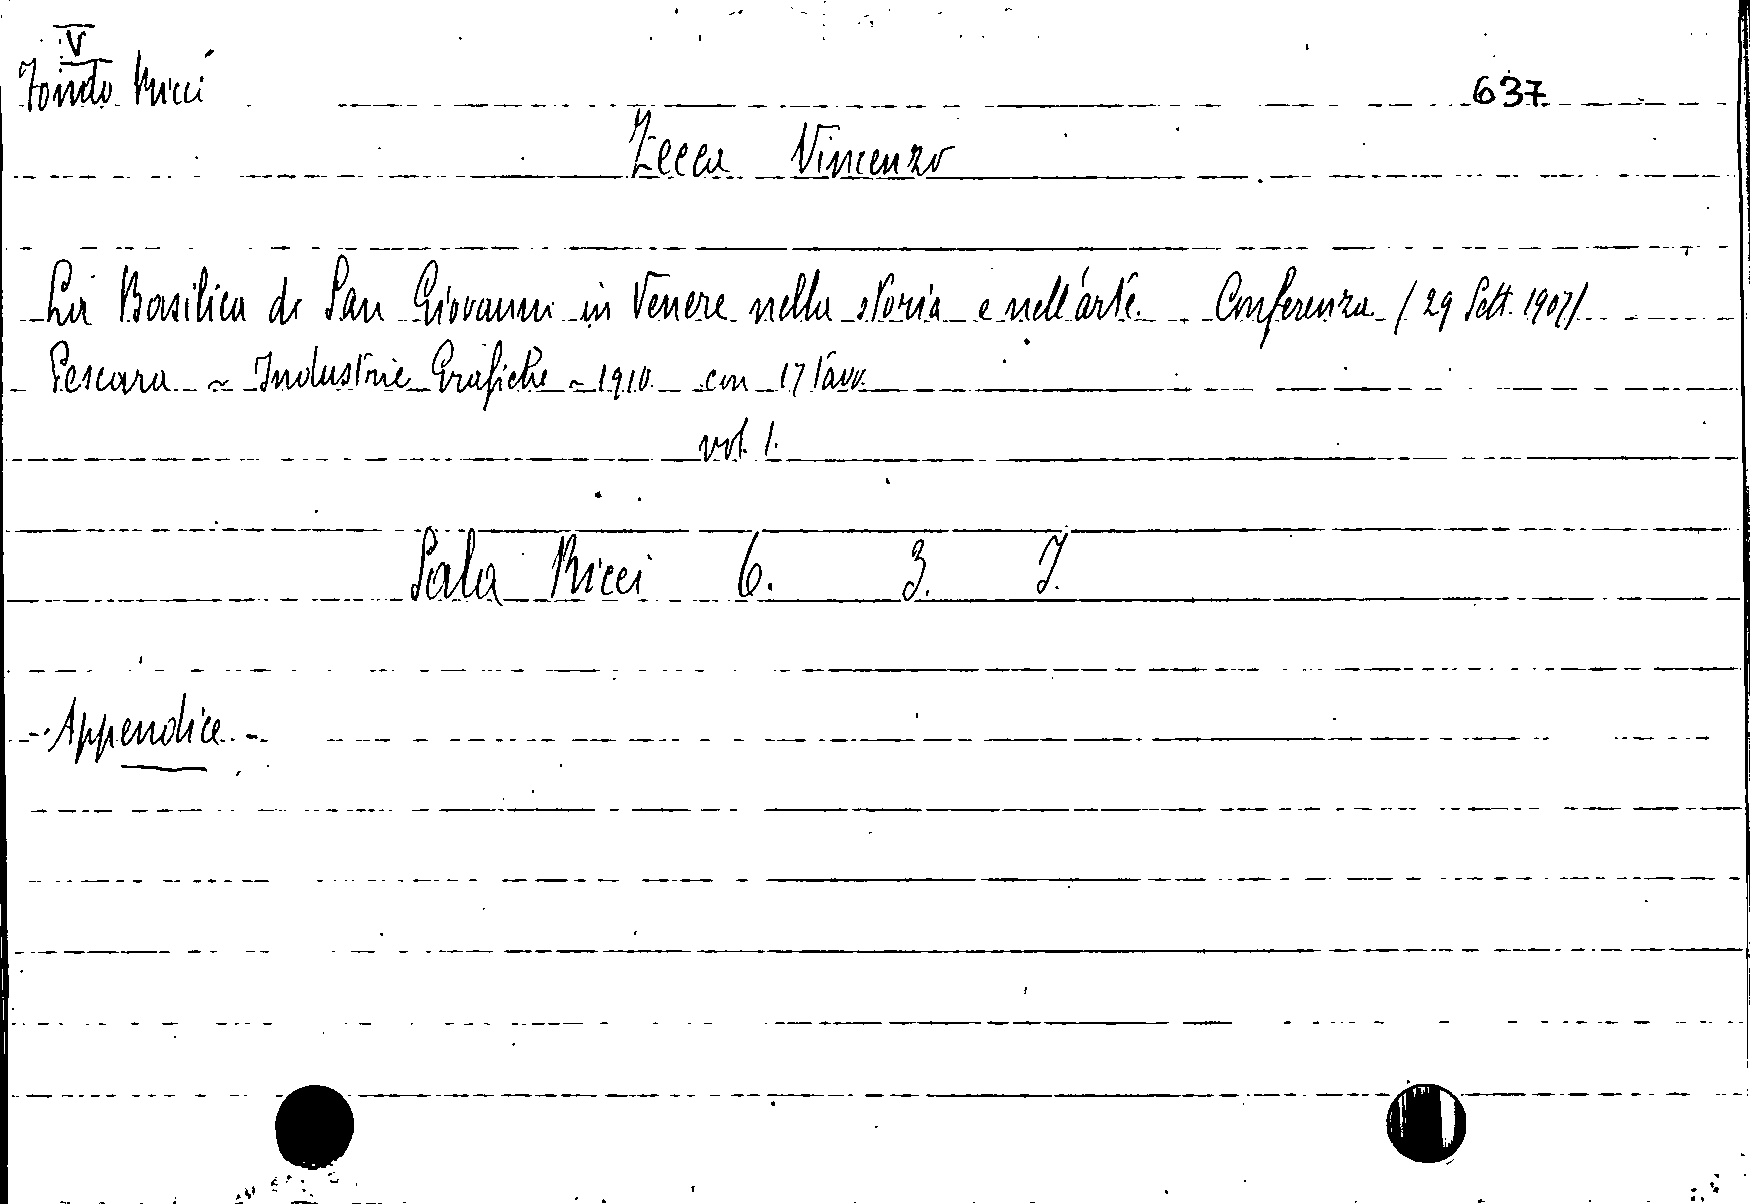 V
Fondo Ricci
637
Zecca Vincenzo
La Basilica di San Giovanni in Venere nella storia e nell'arte. Conferenza (29 Sett. 1907)
Pescara - Industrie Grafiche - 1910. con 17 tavv.
vol. 1.
Sala Ricci 6. 3. 7.
- Appendice -